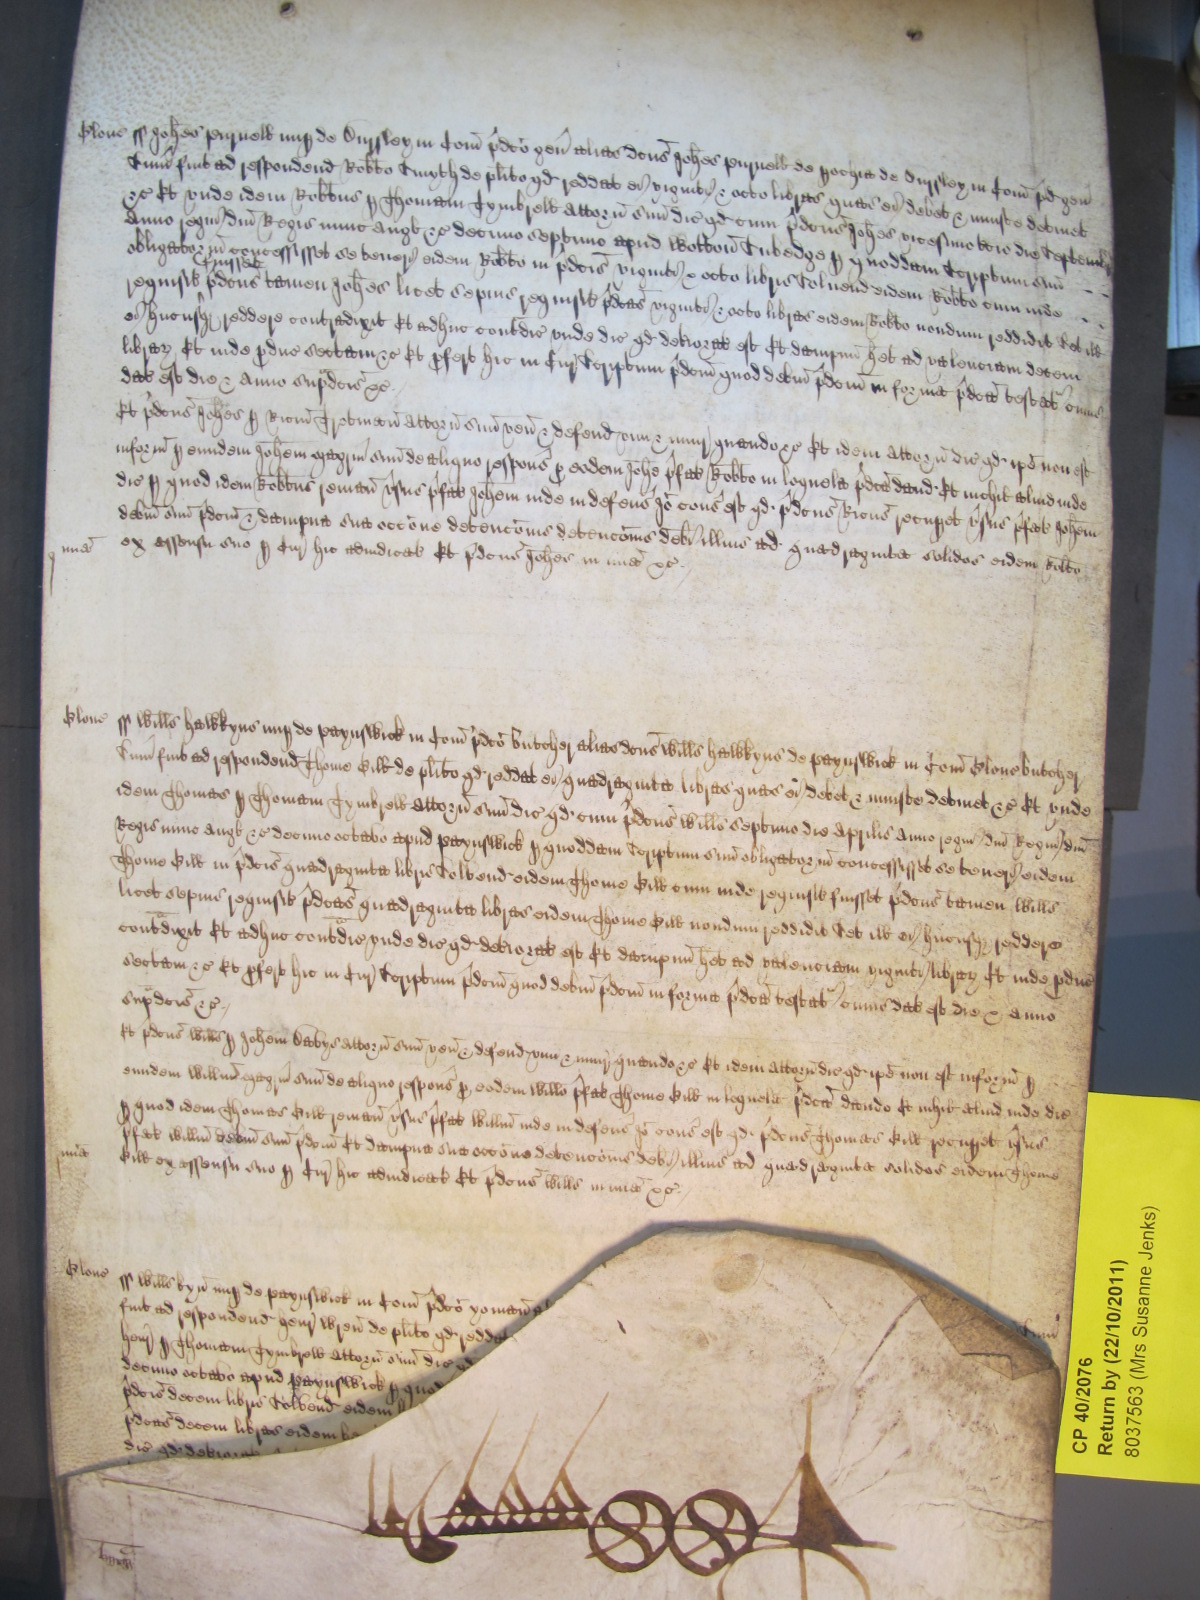 Glouc ss Joh̃es purnell nup de Dursley in Com̃ p̃dco gen̄ alias dc̃us Joh̃es purnell de pochia de Dursley in Com̃ p̃d gen̄
Sum̃ fuit ad respondend Rob̃to Smyth de pl̃ito qd reddat ei viginti & octo libras quas ei debet & iniuste detinet
&c Et vnde idem Rob̃tus p Thomam Tymbrell Attorn̄ suū dic̄ qd cum p̃dc̃us Joh̃es vicesimo die Septem
Anno regni dn̄i Regis nunc Angl &c decimo septimo apud Wotton̄ Subedge p quoddam Scriptum suū
obligatoriū concessisset se teneri eidem Rob̃to in p̃dc̃is viginti & octo libris Solvend eidem Rob̃to cum inde
fuisset
requisit p̃dc̃us tamen Joh̃es licet sepius requisit p̃dc̃as viginti & octo libras eidem Rob̃to nondum reddidit Set ill
ei hucusq reddere contradixit Et adhuc contrad̄ic vnde dic̄ qd deteriorat est Et dampnū h̃et ad valenciam decem
librar Et inde p̃duc̄ sectam &c Et p̃fert hic in Cur̄ Scriptum p̃dc̃m quod debit̄ p̃dc̃m in forma p̃dc̃a testat̄ cuius
dat est die & Anno sup̃dc̃is &c
Et p̃dc̃us Joh̃es p Ric̄um Trotman̄ Attorn̄ suū ven̄ & defend vim & iniur quando &c Et idem Attorn̄ dic̄ qd ip̃e non est
inform̄ p eundem Joh̃em mag̃rm suū de aliquo respons̄ p eodem Joh̃e p̃fat Rob̃to in loquela p̃dc̃a dand Et nichil aliud inde
dic̄ p quod idem Rob̃tus reman̄ v̄sus p̃fat Joh̃em inde indefens̄ Jo cons̄ est qd p̃dc̃us Ric̄us recuperet v̄sus p̃fat Joh̃em
debit̄ suū p̃dc̃m & dampna sua occõne detencõnis detencõnis debi illius ad quadraginta solidos eidem Rob̃to
mi̅a ex assensu suo p Cur̄ hic adiudicat Et p̃dc̃us Joh̃es in mi̅a &c
Glouc ss Will̃s hawkyns nup de paynswick in Com̃ p̃dco butcher alias dc̃us Will̃s hawkyns de paynswick in Com̃ Glouc butcher
Sum̃ fuit ad respondend Thome Gill de pl̃ito qd reddat ei quadraginta libras quas ei debet & iniuste detinet &c Et vnde
idem Thomas p Thomam Tymbrell Attorn̄ suū dic̄ qd cum p̃dc̃us Will̃s septimo die Aprilis Anno regni dn̄i Regni dn̄i
Regis nunc Angl &c decimo octavo apud paynswick p quoddam Scriptum suū obligatoriū concessisset se teneri eidem
Thome Gill in p̃dc̃is quadraginta libris Solvend eidem Thome Gill cum inde requisit fuisset p̃dc̃us tamen Will̃s
licet sepius requisit p̃dc̃as quadraginta libras eidem Thome Gill nondum reddidit Set ill ei hucusq reddere
contrad̄ixit Et adhuc contrad̄ic vnde dic̄ qd deteriorat est Et dampnū h̃et ad valenciam viginti librar Et inde p̃duc̄
sectam &c Et p̃fert hic in Cur̄ Scriptum p̃dc̃m quod debit̄ p̃dc̃m in forma p̃dc̃a testat̄ cuius dat est die & anno
sup̃dc̃is &c
Et p̃dc̃us Will̃s p Joh̃em Dabys Attorn̄ suū ven̄ & defend vim & iniur quando &c Et idem Attorn̄ dic̄ qd ip̃e non est inform̄ p
eundem Will̃m mag̃rm suū de aliquo respons̄ p eodem Will̃o p̃fat Thome Gill in loquela p̃dc̃a dando Et nichil aliud inde dic̄
p quod idem Thomas Gill reman̄ v̄sus p̃fat Will̃m inde indefens̄ Jo cons̄ est qd p̃dc̃us Thomas Gill recuperet v̄sus
p̃fat Will̃m debit̄ suū p̃dc̃m Et dampna sua occõne detencõnis debi illius ad quadraginta solidos eidem Thome
mi̅a Gill ex assensu suo p Cur̄ hic adiudicat Et p̃dc̃us Will̃s in mi̅a &c
Glouc ss Will̃s kyn̄ nup de paynswick in Com̃ p̃dco yoman̄ Sum̃
fuit ad respondend henr̄ Wren̄ de pl̃ito qd reddat
henr̄ p Thomam Tymbrell Attorn̄ suū dic̄ qd
decimo octavo apud paynswick p quod
p̃dc̃is decem libris Solvend eidem
p̃dc̃as decem libras eidem he
dic̄ qd deteriorat
CP 40/2076
Return by (22/10/2011)
8037563 (Mrs Susanne Jenks)